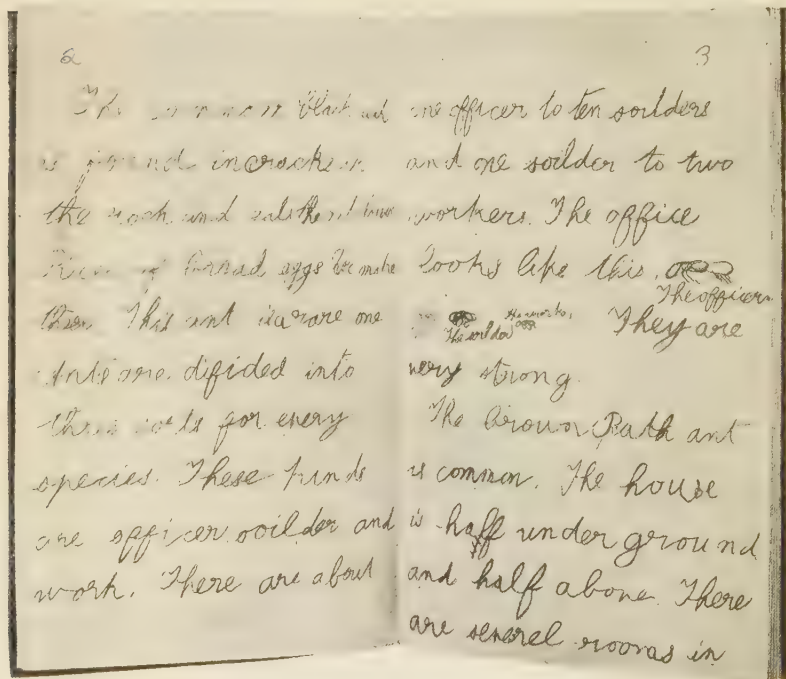 2
The common black ant
is found in cracks in
the rock and
eggs
This ant is a rare one
Ants are difided into
three sorts for every
species. These kinds
are officer soilder and
work. There are about
3
one officer to ten soilders
and one soilder to two
workers. The office
looks like this.
The officer
The soilder
They are
very strong.
The Brown Path ant
is common. The house
is half under ground
and half above. There
are severel rooms in